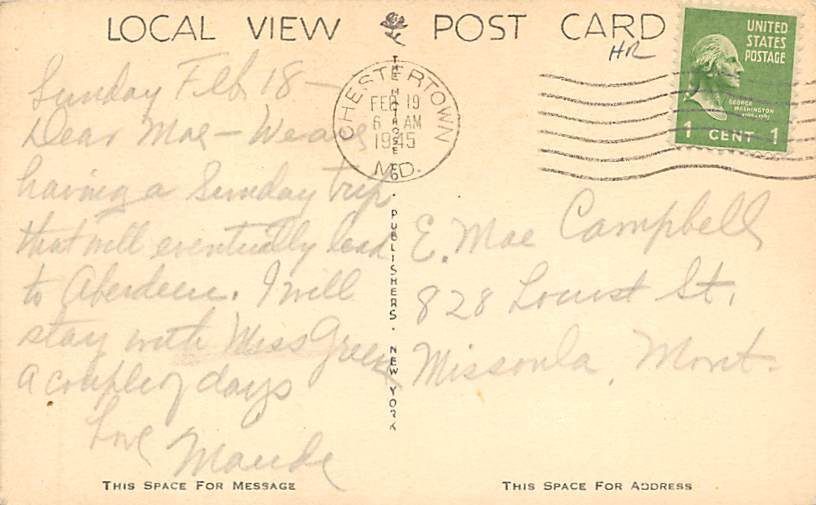 LOCAL VIEW POST CARD
HR
UNITED
STATES
POSTAGE
GEORGE
WASHINGTON
1 CENT 1
CHESTERTOWN
FEB 19
6 AM
1945
MD.
THE MELROSE CO. PUBLISHERS. NEW YORK
Sunday Feb. 18 –
Dear Mae – We are
having a Sunday trip
that will eventually lead
to Aberdeen. I will
stay with Miss Green
a couple of days
Love
Maude
E. Mae Campbell
828 Locust St.
Missoula, Mont.
THIS SPACE FOR MESSAGE
THIS SPACE FOR ADDRESS